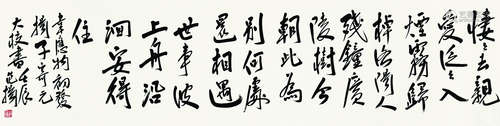 悽々去親
愛泛々入
煙霧歸
棹洛陽人
殘鐘廣
陵樹今
朝此為
別何處
還相遇
世事波
上舟沿
洄安得
住
韋應物初發
揚子寄元
大校書壬辰